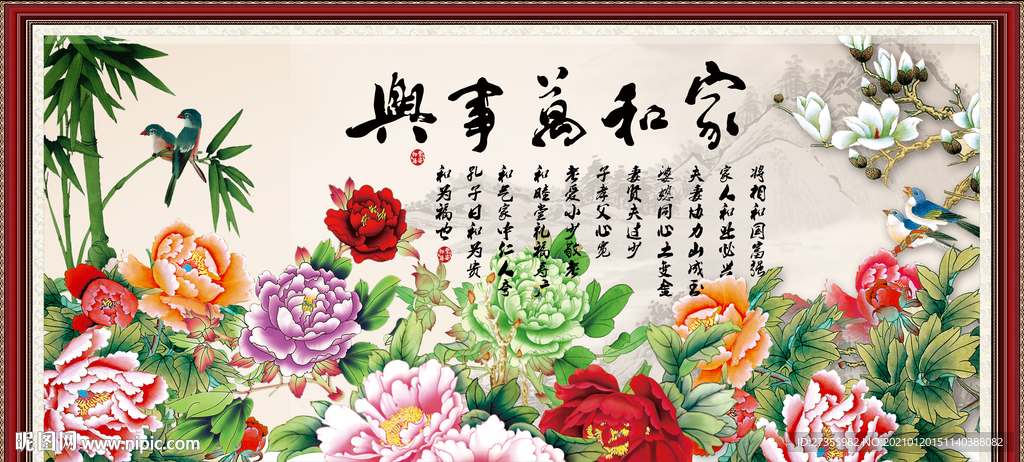 家和萬事興
将相和国富强
家人和业必兴
夫妻协力山成玉
婆媳同心土变金
妻贤夫过少
子孝父心宽
老爱小少敬老
和睦堂礼福寿
和气家中仁人
孔子曰和为贵
和为福也
昵图网 www.nipic.com
ID:27355982 NO:20210120151140388082